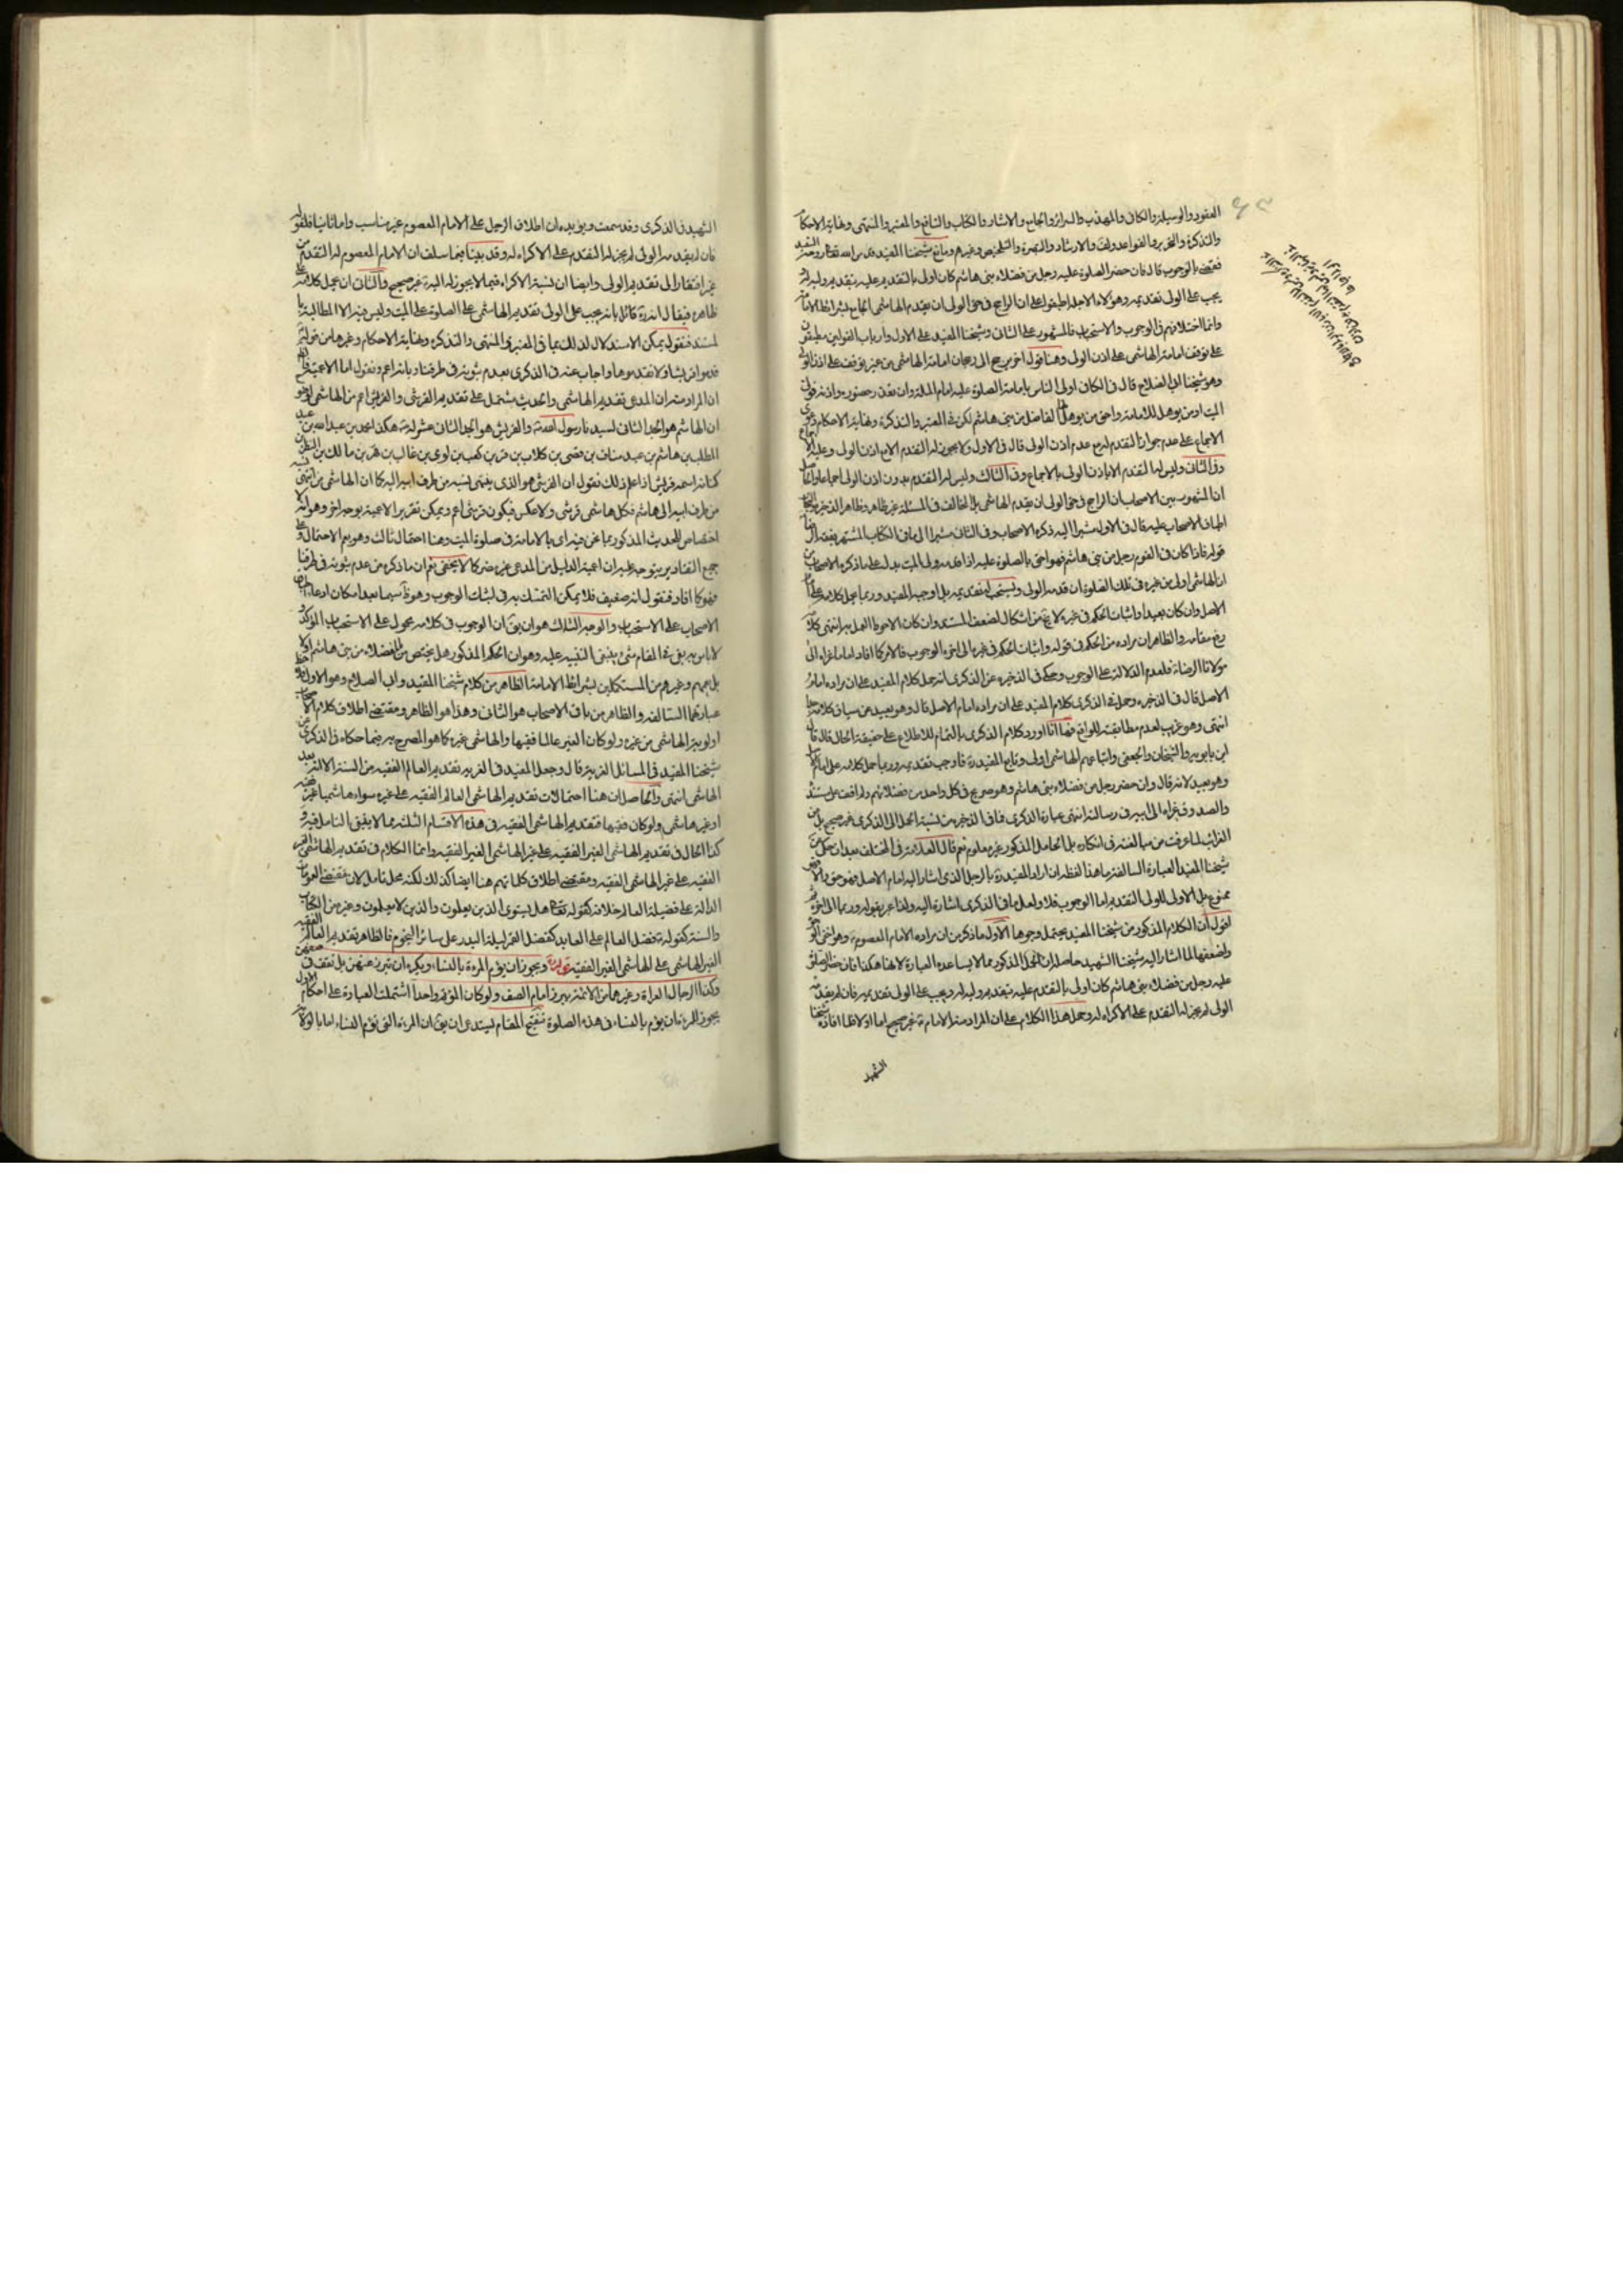 العقود والوسيلة والكافي والمهذب والسرائر والجامع والاشارة والكتاب والنافع والمعتبر والمنتهى ونهاية الاحكام
والتذكرة والتحرير والقواعد والارشاد والتبصرة والتلخيص وغيرهم ومانع شيخنا المفيد قدس الله تعالى روحه
فقضى بالوجوب قال فان حضر الصلوة عليه رجل من فضلاء بني هاشم كان اولى بالتقديم عليه بتقديم وليه له
يجب على الولي تقديمه وهؤلاء الاجلاء اطبقوا على ان الراجح في حق الولي ان يقدم الهاشمي الجامع لشرائط الامامة
وانما اختلافهم في الوجوب والاستحباب فالمشهور على الثاني وشيخنا المفيد على الاول وارباب القولين مطبقون
على توقف امامة الهاشمي على اذن الولي وهنا قول اخر مرجح الى رجحان امامة الهاشمي من غير توقف على اذن الولي
وهو شيخنا ابي الصلاح قال في الكافي اولى الناس بامامة الصلوة عليه امام الملة وان تعذر حضوره واذنه فولي
الميت او من يؤهله للامامة واحق من يؤهل لها الفاضل من بني هاشم لكن في المعتبر والتذكرة ونهاية الاحكام دعوى
الاجماع على عدم جواز التقدم له مع عدم اذن الولي قال في الاول ولا يجوز له التقدم الا مع اذن الولي وعليه الاجماع
وفي الثاني وليس له التقدم الا باذن الولي بالاجماع وفي الثالث وليس له التقدم بدون اذن الولي اجماعا والحاصل
ان المشهور بين الاصحاب ان الراجح في حق الولي ان يقدم الهاشمي بل المخالف في المسئلة غير ظاهر وظاهر الذخيرة
اطباق الاصحاب عليه قال في الاول مشيرا اليه ذكره الاصحاب وفي الثاني مشيرا الى ما في الكتاب المشتهر بفقه الرضا
قوله فاذا كان في القوم رجل من بني هاشم فهو احق بالصلوة عليه اذا قدمه ولي الميت يدل على ما ذكره الاصحاب من
ان الهاشمي اولى من غيره في تلك الصلوة ان قدمه الولي ويستحب له تقديمه بل اوجبه المفيد وربما يحمل كلامه على امام
الاصل وان كان بعيدا واثبات الحكم في غيره لا يخ من اشكال لضعف المستند وان كان الاحوط العمل به انتهى كلامه
رفع مقامه والظاهر ان مراده من الحكم في قوله واثبات الحكم في غيره الى اخره الوجوب فالامر كما افاد اما ما عزاه الى
مولانا الرضا فلعدم الدلالة على الوجوب وحكى في الذخيرة عن الذكرى انه حمل كلام المفيد على ان مراده امام
الاصل قال في الذخيرة وحمل في الذكرى كلام المفيد على ان مراده امام الاصل قال وهو بعيد عن سياق كلامه
انتهى وهو غريب لعدم مطابقته للواقع فها انا اورد كلام الذكرى بالتمام للاطلاع على حقيقة الحال قال قال
ابن بابويه والشيخان والجعفي واتباعهم الهاشمي اولى وبالغ المفيد فاوجب تقديمه وربما حمل كلامه على امام الاصل
وهو بعيد لانه قال وان حضر رجل من فضلاء بني هاشم وهو صريح في كل واحد من فضلائهم ولم اقف على مستنده
والصدوق عزاه الى ابيه في رسالته انتهى عبارة الذكرى فما في الذخيرة من نسبة الحمل الى الذكرى غير صحيح بل من
الغرائب لما عرفت من مبالغته في انكاره بل الحامل المذكور غير معلوم نعم قال العلامة في المختلف بعد ان حكى عن
شيخنا المفيد العبارة السالفة ما هذا لفظه ان اراد المفيد بالرجل الذي اشار اليه امام الاصل فهو حق والا فهو
ممنوع بل الاولى للولي التقديم اما الوجوب فلا ولعل ما في الذكرى اشارة اليه ولذا عبر بقوله وربما الى اخره
اقول ان الكلام المذكور من شيخنا المفيد يحتمل وجوها الاول ما ذكر من ان مراده الامام المعصوم وهو اخفى الوجوه
واضعفها لما اشار اليه شيخنا الشهيد حاصله ان الحمل المذكور مما لا يساعده العبارة لانها هكذا فان حضر الصلوة
عليه رجل من فضلاء بني هاشم كان اولى بالتقدم عليه بتقديم وليه له ويجب على الولي تقديمه فان لم يقدمه
الولي لم يجز له التقدم على الاكراه له وحمل هذا الكلام على ان المراد منه الامام غير صحيح اما اولا فلما افاده شيخنا
الشهيد
الشهيد في الذكرى وقد سمعت ويؤيده ان اطلاق الرجل على الامام المعصوم غير مناسب واما ثانيا فلقوله
فان لم يقدمه الولي لم يجز له التقدم على الاكراه له وقد بينا فيما سلف ان الامام المعصوم له التقدم من
غير افتقار الى تقديم الولي وايضا ان نسبة الاكراه فيما لا يجوز له اليه غير صحيح والثاني ان يحمل كلامه على
ظاهره فيقال انه قائل بانه يجب على الولي تقديم الهاشمي على الصلوة على الميت وليس فيه الا المطالبة با
لمستند فنقول يمكن الاستدلال لذلك بما في المعتبر والمنتهى والتذكرة ونهاية الاحكام وغيرها من قوله
قدموا قريشا ولا تقدموها واجاب عنه في الذكرى بعدم ثبوته في طرقنا وبانه اعم ونقول اما الاعمية فلاجل
ان المراد منه ان المدعى تقديم الهاشمي والحديث مشتمل على تقديم القرشي والقرشي اعم من الهاشمي لوضوح
ان الهاشم هو الجد الثاني لسيدنا رسول الله والقريش هو الجد الثاني عشر له هكذا محمد بن عبد الله بن عبد
المطلب بن هاشم بن عبد مناف بن قصي بن كلاب بن مرة بن كعب بن لوي بن غالب بن فهر بن مالك بن النضر بن
كنانة اسمه قريش اذا علم ذلك نقول ان القرشي هو الذي ينتهي نسبه من طرف ابيه اليه كما ان الهاشمي من انتهى نسبه
من طرف ابيه الى هاشم فكل هاشمي قرشي ولا عكس فيكون قرشي اعم ويمكن تقرير الاعمية بوجه اخر وهو انه لا
اختصاص للحديث المذكور بما نحن فيه اي بالامامة في صلوة الميت وهنا احتمال ثالث وهو يعم الاحتمال وعلى
جميع التقادير يتوجه عليه ان اعمية الدليل من المدعى غير مضر كما لا يخفى نعم ان ما ذكره من عدم ثبوته في طرقنا
فهو كما افاد فنقول انه ضعيف فلا يمكن التمسك به في اثبات الوجوب وهو ظ سيما بعد امكان ادعاء اطباق
الاصحاب على الاستحباب والوجه الثالث هو ان يق ان الوجوب في كلامه محمول على الاستحباب المؤكد و
لا باس به بقي في المقام شئ ينبغي التنبيه عليه وهو ان الحكم المذكور هل يختص بالفضلاء من بني هاشم او لا
بل يعمهم وغيرهم من المستكملين بشرائط الامامة الظاهر من كلام شيخنا المفيد وابي الصلاح وهو الاول لاحظ
عبارتهما السالفة والظاهر من باقي الاصحاب هو الثاني وهذا هو الظاهر ومقتضى اطلاق كلام الاصحاب
اولوية الهاشمي من غيره ولو كان الغير عالما فقيها والهاشمي غيره كما هو المصرح به فيما حكاه في الذكرى عن
شيخنا المفيد في المسائل الغرية قال وجعل المفيد في الغرية تقديم العالم الفقيه من السنة الاانه بعد
الهاشمي انتهى والحاصل ان هنا احتمالات تقديم الهاشمي العالم الفقيه على غيره سواء هاشميا غير فقيه
او غير هاشمي ولو كان فقيها فتقديم الهاشمي الفقيه في هذه الاقسام الثلثة مما لا ينبغي التامل فيه و
كذا الحال في تقديم الهاشمي الغير الفقيه على غير الهاشمي الغير الفقيه وانما الكلام في تقديم الهاشمي الغير
الفقيه على غير الهاشمي الفقيه ومقتضى اطلاق كلماتهم هنا ايضا كذلك لكنه محل تامل لان مقتضى العمومات
الدالة على فضيلة العالم خلافه كقوله تعالى هل يستوي الذين يعلمون والذين لا يعلمون وغيره من الكتاب
والسنة كقوله فضل العالم على العابد كفضل القمر ليلة البدر على سائر النجوم فالظاهر تقديم العالم الفقيه
الغير الهاشمي على الهاشمي الغير الفقيه قوله ويجوز ان يؤم المرءة بالنساء ويكره ان تبرز عنهن بل تقف في صفهن
وكذا الرجال العراة وغيرهما من الائمة يبرز امام الصف ولو كان المؤتم واحدا اشتملت العبارة على احكام الاول
يجوز للمرءة ان يؤم بالنساء في هذه الصلوة تنقيح المقام يستدعي ان يق ان المرءة التي تؤم النساء اما بالولاية